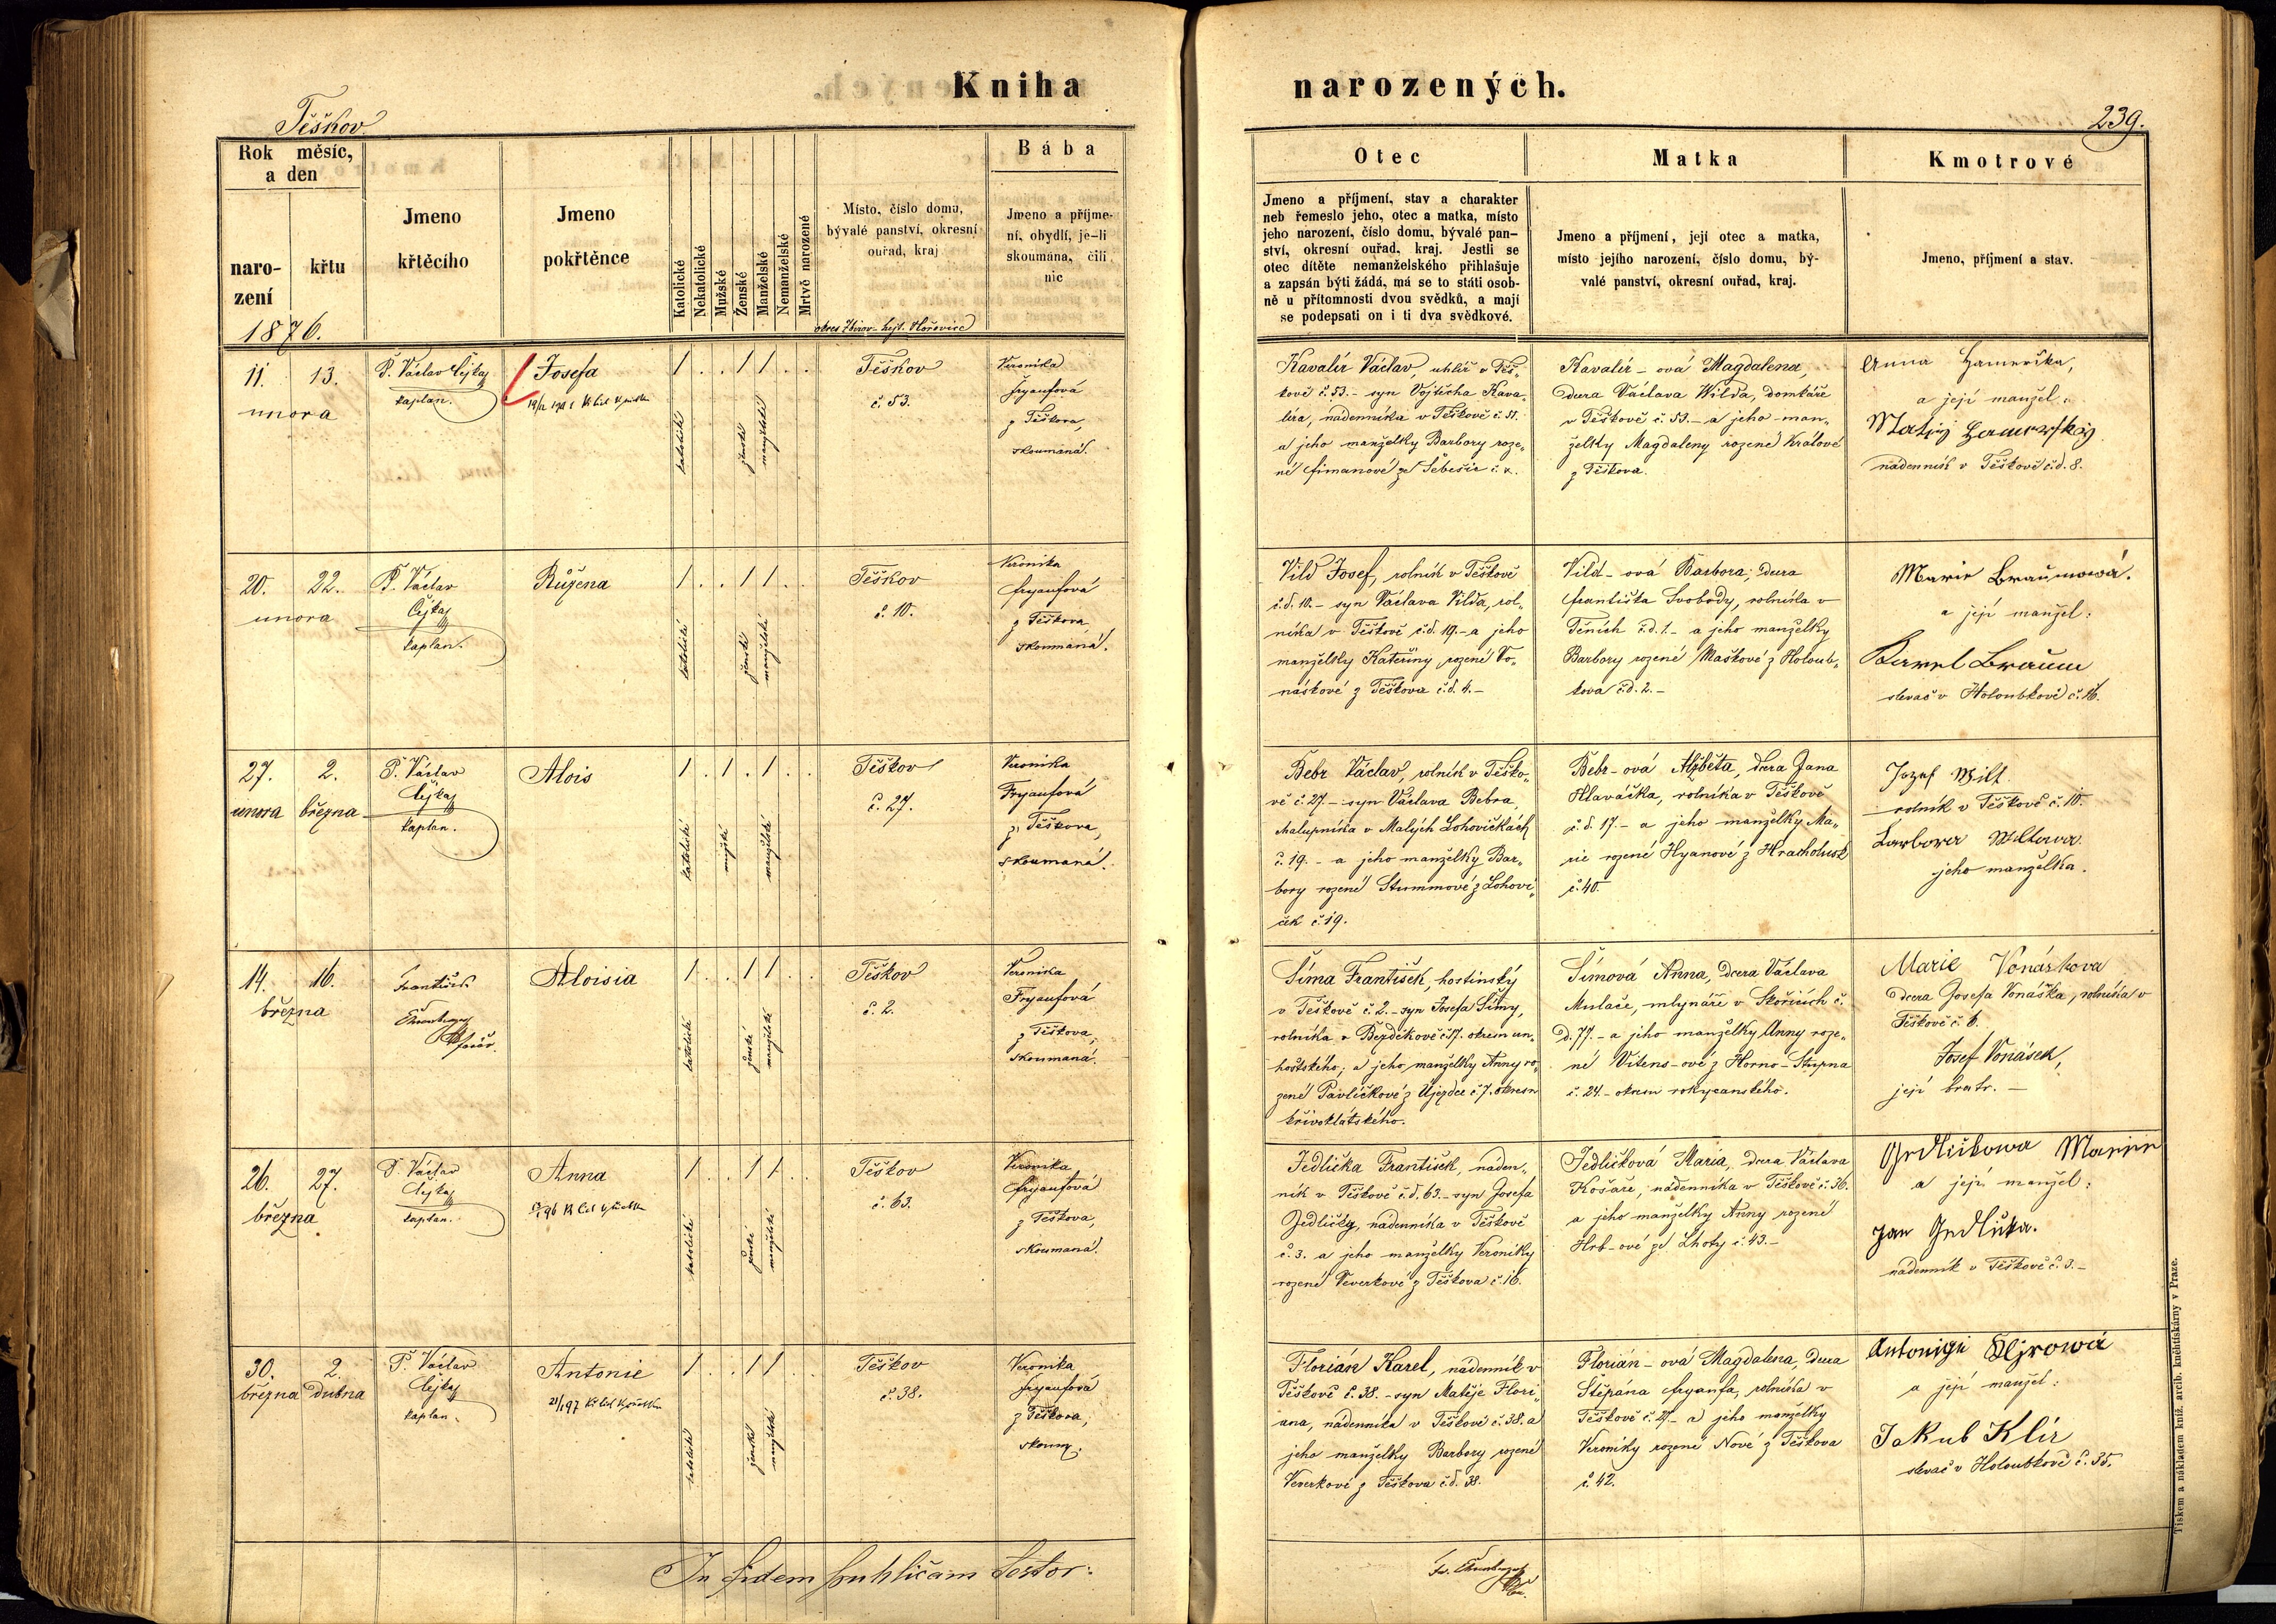 Kniha narozených.
Těškov
239.
Rok měsíc,
a den
naro-
zení
křtu
1876.
Jmeno
křtěcího
Jmeno
pokřtěnce
Katolické
Nekatolické
Mužské
Ženské
Manželské
Nemanželské
Mrtvě narozené
Místo, číslo domu,
bývalé panství, okresní
ouřad, kraj
okres Zbirov - hejt. Hořovice
Bába
Jmeno a příjme-
ní, obydlí, je-li
skoumána, čili
nic
Otec
Jmeno a příjmení, stav a charakter
neb řemeslo jeho, otec a matka, místo
jeho narození, číslo domu, bývalé pan-
ství, okresní ouřad, kraj. Jestli se
otec dítěte nemanželského přihlašuje
a zapsán býti žádá, má se to státi osob-
ně u přítomnosti dvou svědků, a mají
se podepsati on i ti dva svědkové.
Matka
Jmeno a příjmení, její otec a matka,
místo jejího narození, číslo domu, bý-
valé panství, okresní ouřad, kraj.
Kmotrové
Jmeno, příjmení a stav.
11. 13.
unora
P. Václav Čejka
kaplan.
Josefa
1 . . 1 1 . .
katolické
ženské
manželské
Těškov
č. 53.
Veronika
Fryaufová
z Těškova,
skoumaná.
Kavalír Václav, uhlíř v Těš-
kově č. 53. - syn Vojtěcha Kava-
líra, nádenníka v Těškově č. 51.
a jeho manželky Barbory roze-
né Šimanové ze Šebešic č. 2.
Kavalír-ová Magdalena,
dcera Václava Wilda, domkáře
v Těškově č. 53. - a jeho man-
želky Magdaleny rozené Králové
z Těškova.
Anna Hamerska,
a její manžel:
Matěj Hamerský
nádenník v Těškově č.d. 8.
20. 22.
unora
P. Václav
Čejka
kaplan.
Růžena
1 . . 1 1 . .
katolické
ženské
manželské
Těškov
č. 10.
Veronika
Fryaufová
z Těškova
skoumaná.
Vild Josef, rolník v Těškově
č.d. 10. - syn Václava Vilda, rol-
níka v Těškově č.d. 19. - a jeho
manželky Kateřiny rozené Vo-
náskové z Těškova č.d. 4. -
Vild-ová Barbora, dcera
Františka Svobody, rolníka v
Těních č.d. 1. - a jeho manželky
Barbory rozené Maškové z Holoub-
kova č.d. 2. -
Marie Braumowá.
a její manžel:
Karel Braum
slevač v Holoubkově č. 16.
27. 2.
unora března
P. Václav
Čejka
kaplan.
Alois
1 . 1 . 1 . .
katolické
mužské
manželské
Těškov
č. 27.
Veronika
Fryaufová
z Těškova,
skoumaná.
Bebr Václav, rolník v Těško-
vě č. 27. - syn Václava Bebra,
chalupníka v Malých Lohovičkách
č. 19. - a jeho manželky Bar-
bory rozené Stummové z Lohovi-
ček č. 19.
Bebr-ová Alžběta, dcera Jana
Hlaváčka, rolníka v Těškově
č.d. 17. - a jeho manželky Ma-
rie rozené Hyanové z Hracholusk
č. 40.
Jozef Wilt.
rolník v Těškově č. 10.
Barbora Wiltowa
jeho manželka.
14. 16.
března
František
farář.
Aloisia
1 . . 1 1 . .
katolické
ženské
manželské
Těškov
č. 2.
Veronika
Fryaufová
z Těškova,
skoumaná.
Šíma František, hostinský
v Těškově č. 2. - syn Josefa Šímy,
rolníka v Bezděkově č. 17. okresu un-
hoštského; a jeho manželky Anny ro-
zené Pavlíčkové z Újezdce č. 7. okresu
křivoklátského.
Šímová Anna, dcera Václava
Mulače, mlynáře v Skořicích č.
D. 77. - a jeho manželky Anny roze-
né Vitens-ové z Horno-Stupna
č. 24. - okresu rokycanského.
Marie Vonáskova
dcera Josefa Vonáska, rolníka v
Těškově č. 6.
Josef Vonásek,
její bratr. -
26. 27.
března
P. Václav
Čejka
kaplan.
Anna
1 . . 1 1 . .
katolické
ženské
manželské
Těškov
č. 63.
Veronika
Fryaufová
z Těškova,
skoumaná.
Jedlička František, náden-
ník v Těškově č.d. 63. - syn Josefa
Jedličky, nádenníka v Těškově
č. 3. a jeho manželky Veroniky
rozené Veverkové z Těškova č. 16.
Jedličková Maria, dcera Václava
Košaře, nádenníka v Těškově č. 36.
a jeho manželky Anny rozené
Hrb-ové ze Lhoty č. 43. -
Jedlickowa Marie
a její manžel:
Jan Jedlička.
nádenník v Těškově č. 3. -
30. 2.
března dubna
P. Václav
Čejka
kaplan.
Antonie
1 . . 1 1 . .
katolické
ženské
manželské
Těškov
č. 38.
Veronika
Fryaufová
z Těškova,
skoum.
Florián Karel, nádenník v
Těškově č. 38. - syn Matěje Flori-
ana, nádenníka v Těškově č. 38. a
jeho manželky Barbory rozené
Veverkové z Těškova č.d. 38.
Florián-ová Magdalena, dcera
Štěpána Fryaufa, rolníka v
Těškově č. 27. - a jeho manželky
Veroniky rozené Nové z Těškova
č. 42.
a její manžel:
Jakub Klír
slevač v Holoubkově č. 35.
In fidem publicam testor:
Tiskem a nákladem kníž. arcib. knihtiskárny v Praze.